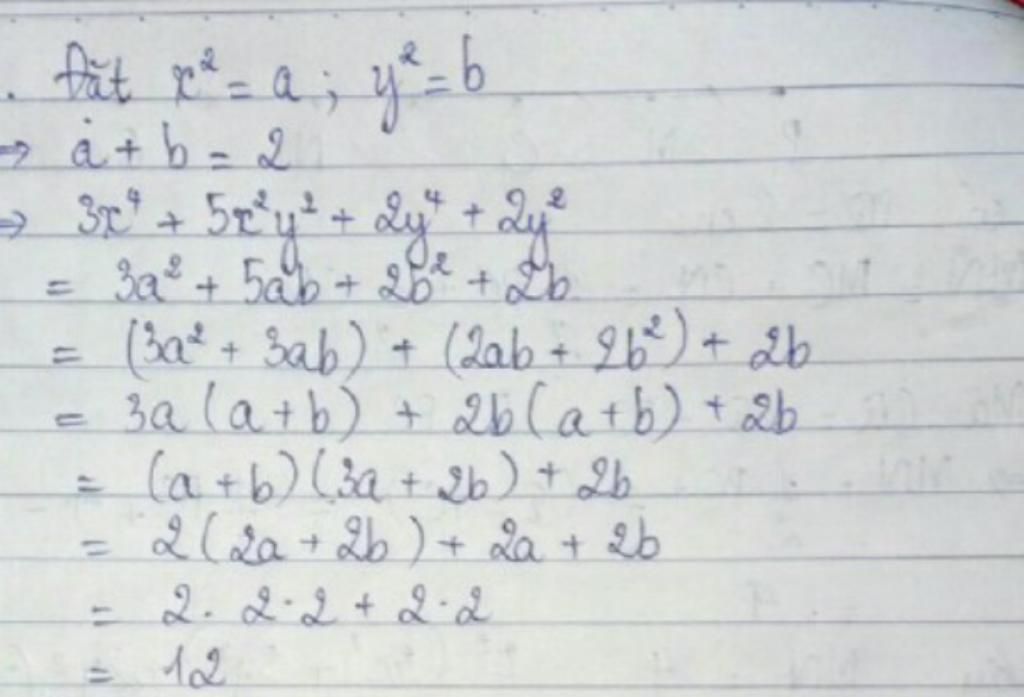 . Đặt x² = a ; y² = b
⇒ a + b = 2
⇒ 3x⁴ + 5x²y² + 2y⁴ + 2y²
= 3a² + 5ab + 2b² + 2b
= (3a² + 3ab) + (2ab + 2b²) + 2b
= 3a (a + b) + 2b (a + b) + 2b
= (a + b) (3a + 2b) + 2b
= 2 (2a + 2b) + 2a + 2b
= 2 . 2 . 2 + 2 . 2
= 12